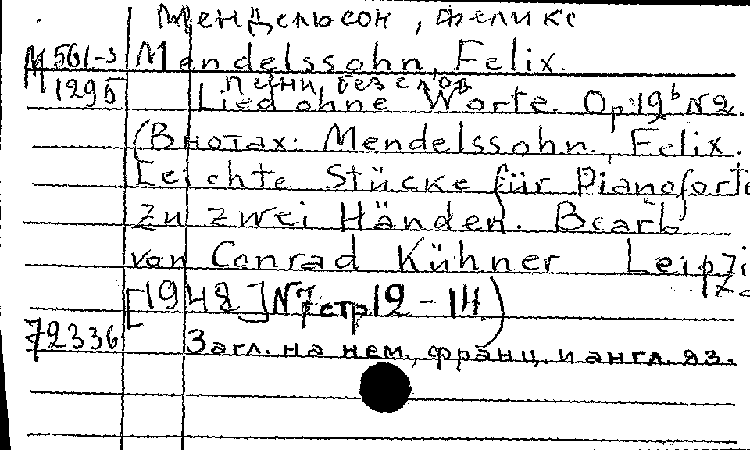 Мендельсон, Феликс
М 561-3 Mendelssohn, Felix.
М 1295 Песни без слов
Lied ohne Worte. Op. 19b N2.
(В нотах: Mendelssohn, Felix.
Leichte Stücke für Pianoforte
zu zwei Händen. Bearb
von Conrad Kühner Leipzi
[1948] N7 стр 12-14)
72336 Загл. на нем., франц. и англ. яз.